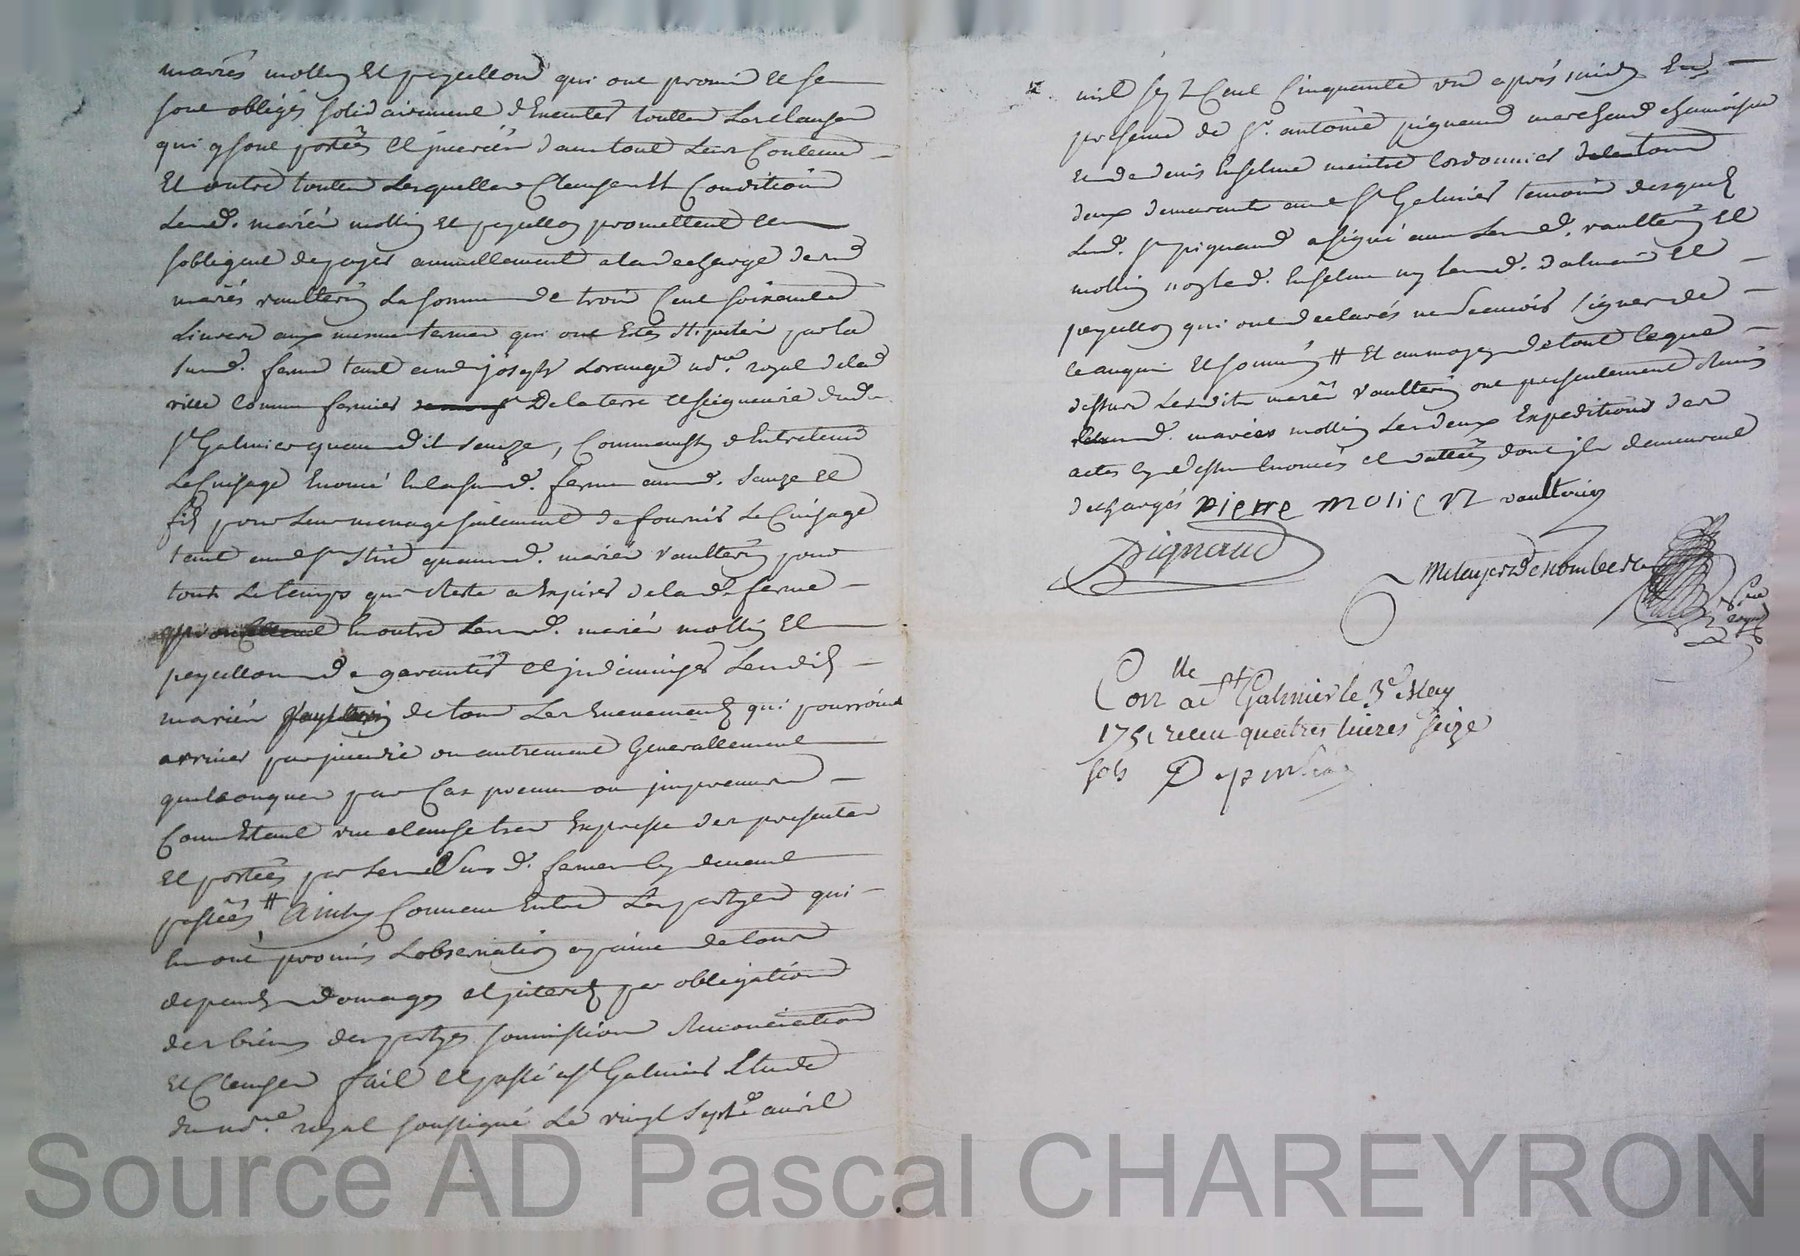 mariés mollin Et peyellon qui ont promis Et se
sont obligés solidairement d'Executer toutes Les clauses
qui y sont portées Et juserées dans tout Leur Contenu
Et outre toutes Lesquelles Clauses Et Condition
Lesd. mariés mollin Et peyellon promettent Et
sobligent de payer annuellement a la decharge desd
mariés vaultrin La somme de trois Cent soixante
Livres aux mesmes termes qui ont Estés stipulés par la
susd. ferme tant aud joseph Lorange nore. royal de lad
ville comme fermier de la terre Et seigneurie dud.
St Galmier quaudit sauze, Comme aussy d'Entretenir
Le Cuisage Enoncé En la susd. ferme aud. sauze Et
fils pour Leur menage seulement de fournir Le Cuisage
tant aud Sr quausd. mariés vaultrin pour
tout Le temps qui Reste a Expirer de lad. ferme
En outre Lesd. mariés mollin Et
peyellon de garantir Et jndamniser Lesdits
mariés vaultrin de tous Les Evenements qui pourroint
arriver par jncendie ou autrement Generallement
quelconques par Cas preveu ou jmpreveu
Comme Etant une clause tres Expresse des presentes
Et portées par Les susd. fermes Cy devant
passées # Ainsy Convenu Entre Les partyes qui
En ont promis Lobservation a peine de tous
depends domages Et jnterets par obligation
des biens des partyes soumission Renonciation
Et Clauses fait Et passé a St Galmier Etude
du nore. royal soussigné Le vingt Septe. avril
mil sept Cent Cinquante un après midy En
presence de Sr. antoine pignaud marchand chamoiseur
Et de denis Enselme maitre Cordonnier
deux demeurants aud St Galmier temoins desquels
Led. Sr pignaud a signé avec Lesd. vaultrin Et
mollin non Led. Enselme ny Lesd. dalmais Et
peyellon qui ont declarés ne scavoir signer de
ce enquis Et sommés # Et au moyen de tout ce que
dessus Lesdits mariés vaultrin ont presentement Remis
auxd. mariés mollin Les deux Expeditions des
actes Cy dessus Enoncés Et dattés dont jls demeurent
dechargés Pierre Molien vaultrin
Pignaud
Conlle a St Galmier le 3e May
1751 receu quatres livres seize
sols
Source AD Pascal CHAREYRON